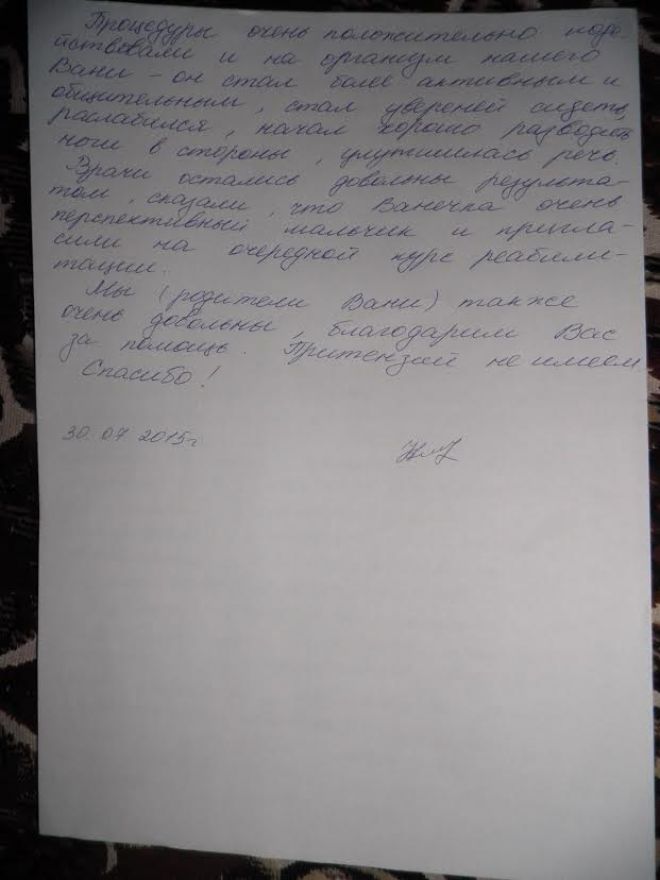 Процедуры очень положительно поде
йствовали и на организм нашего
Вани - он стал более активным и
общительным, стал уверений сидеть,
расслабился, начал хорошо разводить
ноги в стороны, улучшилась речь.
Врачи остались довольны результа-
том, сказали, что Ванечка очень
перспективный мальчик и пригла-
сили на очередной курс реабили-
тации.
Мы (родители Вани) также
очень довольны, благодарим Вас
за помощь. Притензий не имеем
Спасибо!
30.07 2015г